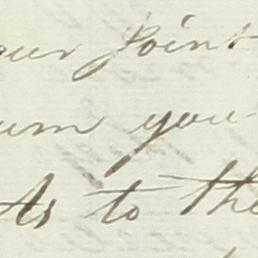 our joint
urn you
As to the